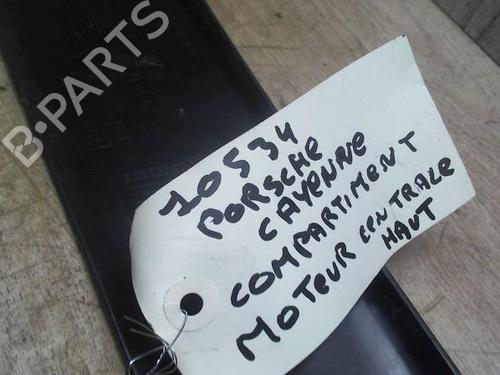 B-PARTS
10534
PORSCHE
CAYENNE
COMPARTIMENT
MOTEUR CENTRALE
HAUT